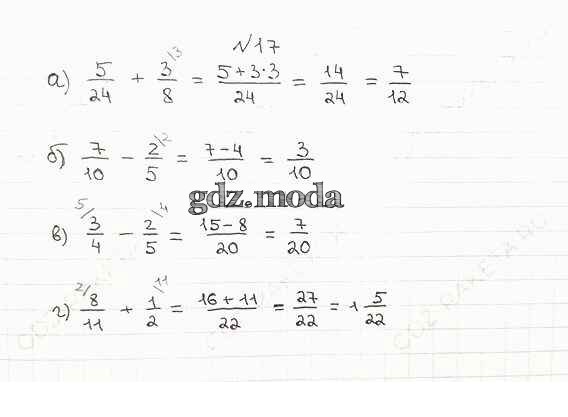 №17
а) 5/24 + 3/8 /3 = (5+3·3)/24 = 14/24 = 7/12
б) 7/10 − 2/5 /2 = (7−4)/10 = 3/10
gdz.moda
в) 5/ 3/4 − 2/5 /4 = (15−8)/20 = 7/20
г) 2/ 8/11 + 1/2 /11 = (16+11)/22 = 27/22 = 1 5/22